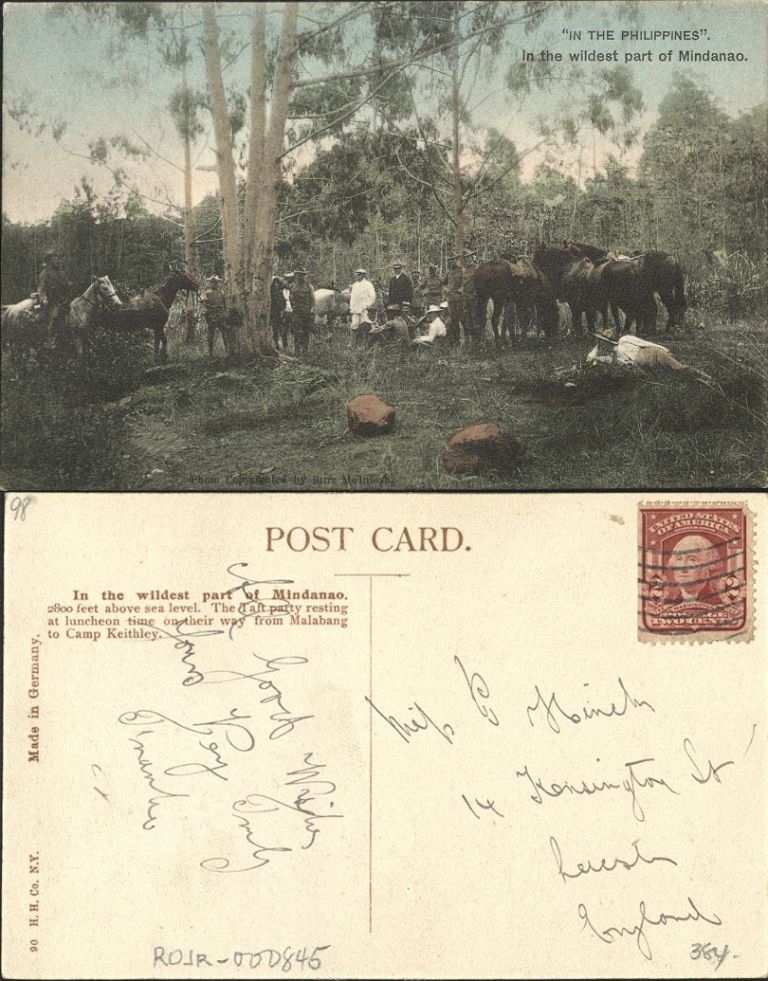 "IN THE PHILIPPINES".
In the wildest part of Mindanao.
Photo Copyrighted by Burr McIntosh.
98
POST CARD.
UNITED STATES
OF AMERICA
2 2
TWO CENTS
In the wildest part of Mindanao.
2800 feet above sea level. The Taft party resting
at luncheon time on their way from Malabang
to Camp Keithley.
Made in Germany.
90 H. H. Co. N.Y.
Good Wishes
Yours Very Truly
Miss C
14 Kensington St
Leicester
England
ROJR-000845
364.